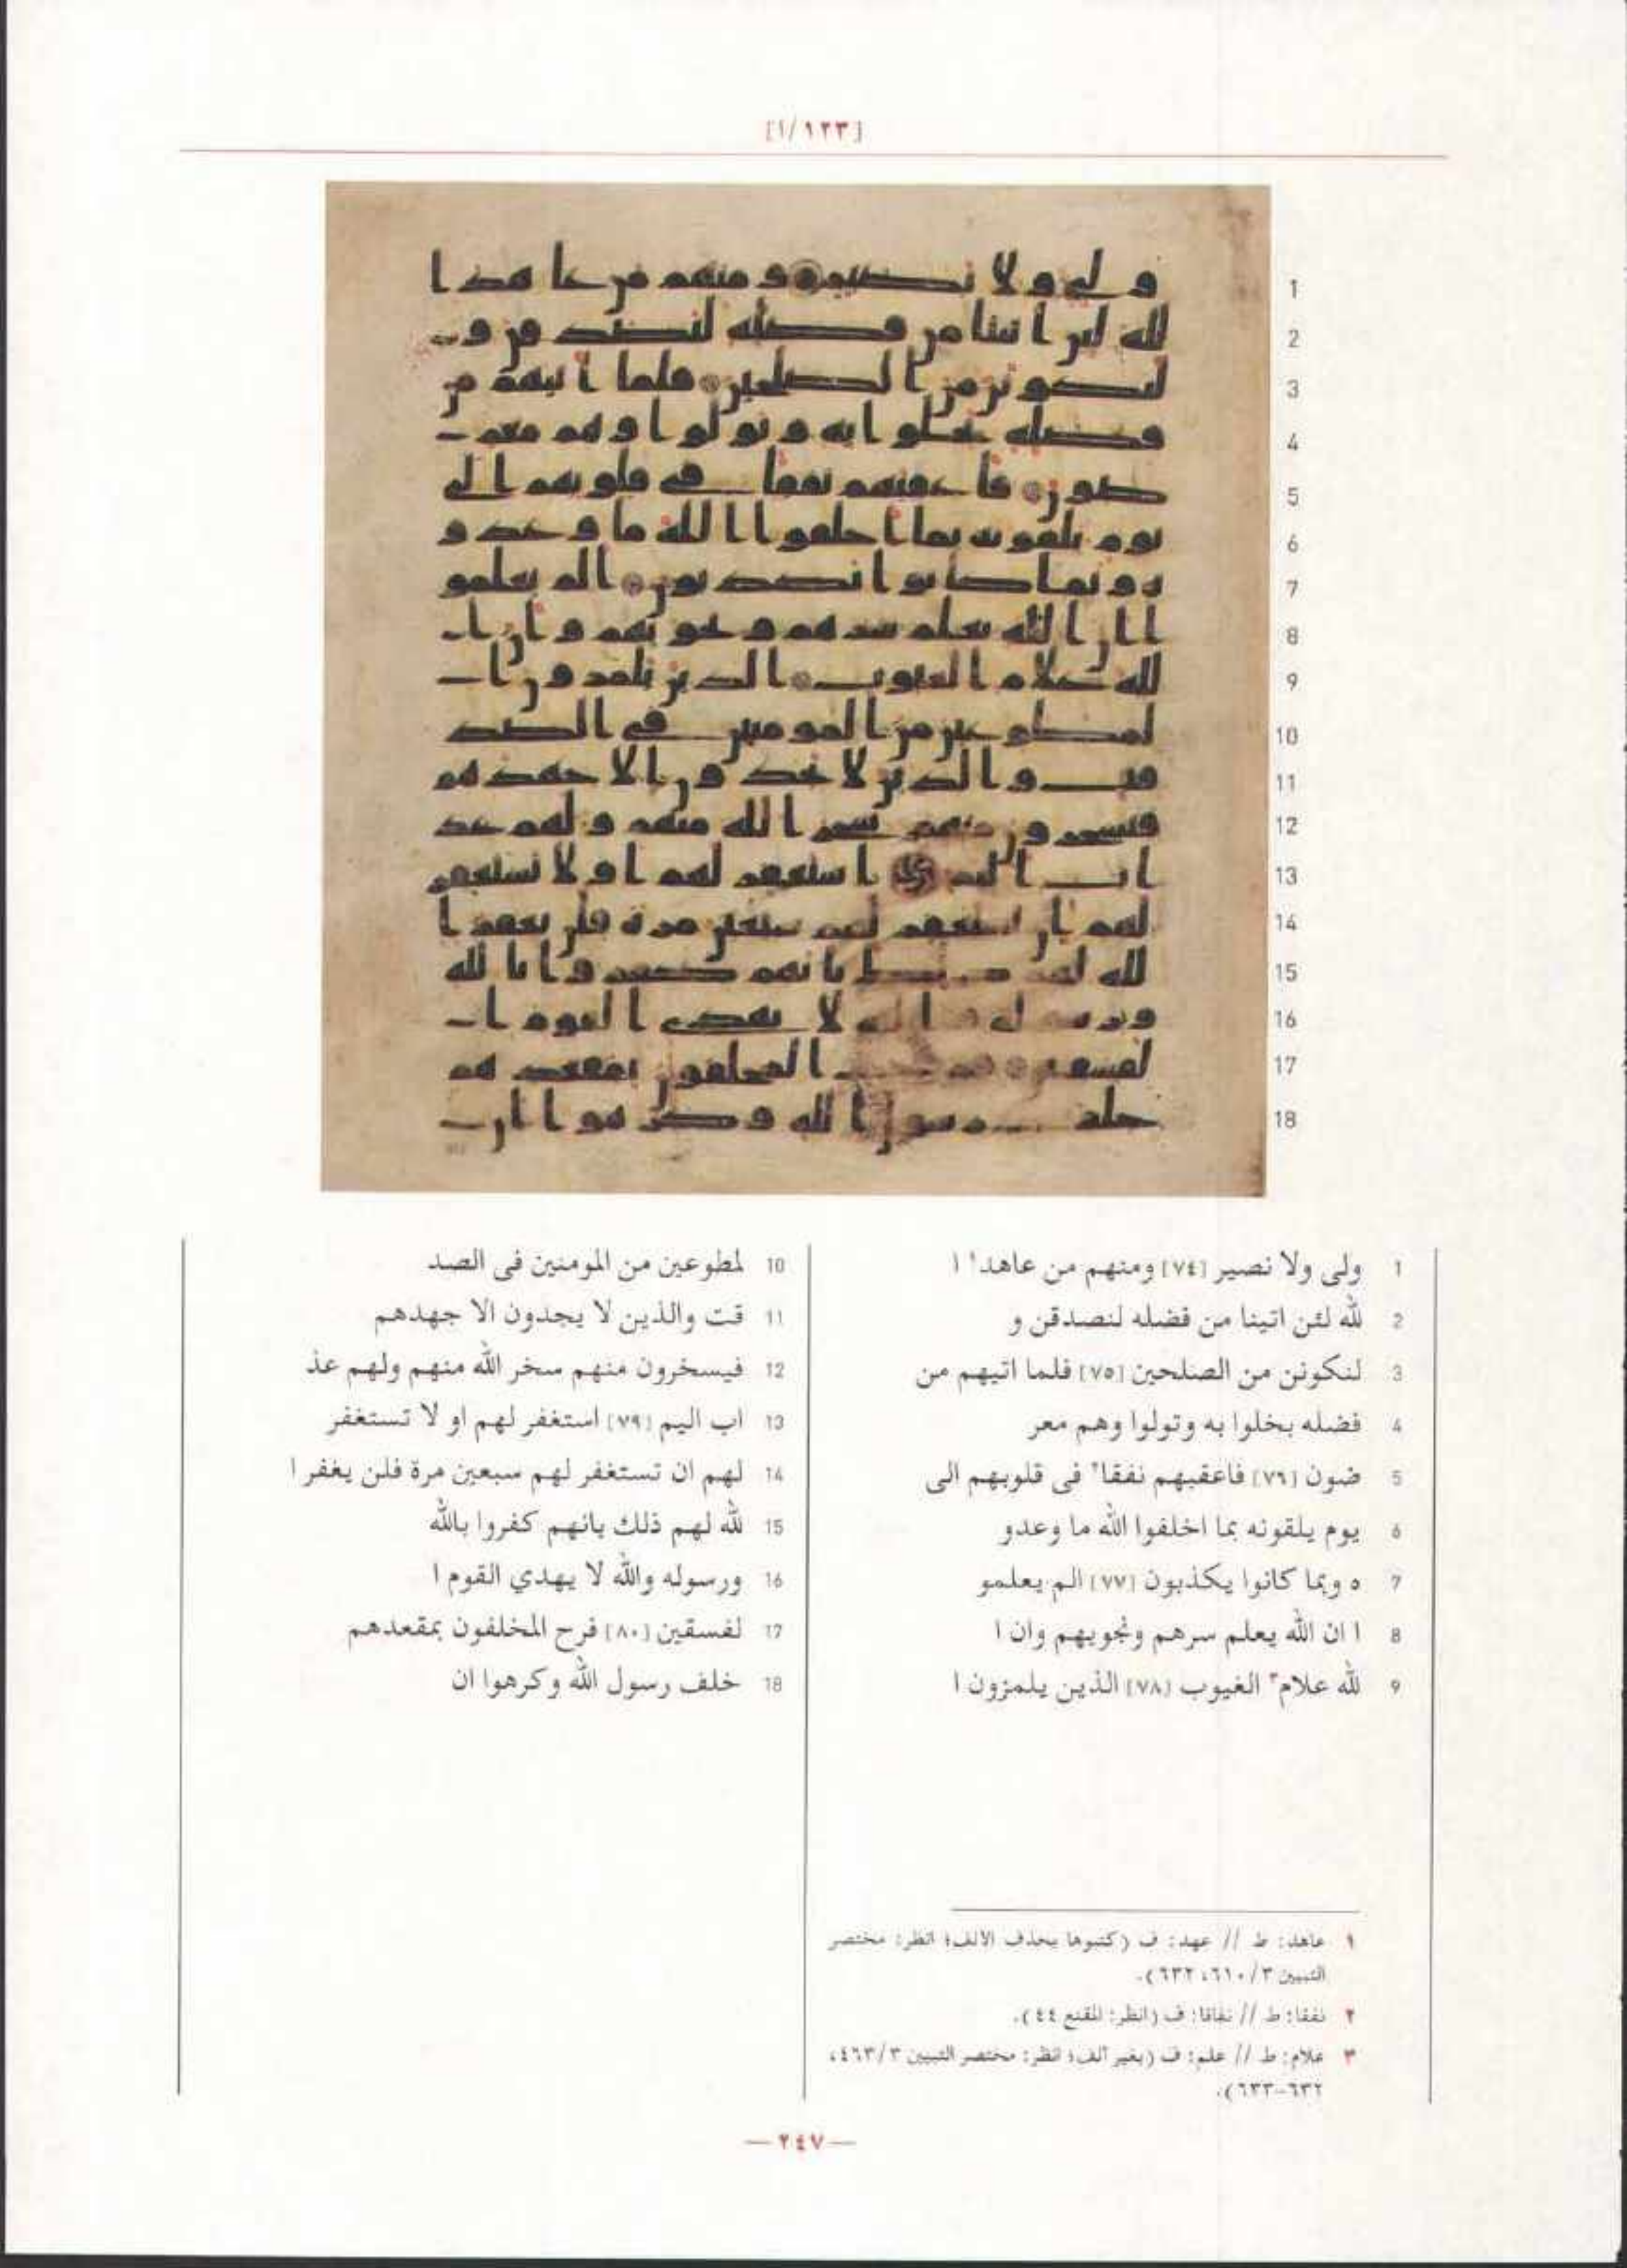 [١/١٢٣]
1 ولى ولا نصير [٧٤] ومنهم من عاهد١ ا
2 لله لئن اتينا من فضله لنصدقن و
3 لنكونن من الصلحين [٧٥] فلما اتيهم من
4 فضله بخلوا به وتولوا وهم معر
5 ضون [٧٦] فاعقبهم نفقا٢ فى قلوبهم الى
6 يوم يلقونه بما اخلفوا الله ما وعدو
7 ه وبما كانوا يكذبون [٧٧] الم يعلمو
8 ا ان الله يعلم سرهم ونجويهم وان ا
9 لله علام٣ الغيوب [٧٨] الذين يلمزون ا
10 لمطوعين من المومنين فى الصد
11 قت والذين لا يجدون الا جهدهم
12 فيسخرون منهم سخر الله منهم ولهم عذ
13 اب اليم [٧٩] استغفر لهم او لا تستغفر
14 لهم ان تستغفر لهم سبعين مرة فلن يغفر ا
15 لله لهم ذلك بانهم كفروا بالله
16 ورسوله والله لا يهدي القوم ا
17 لفسقين [٨٠] فرح المخلفون بمقعدهم
18 خلف رسول الله وكرهوا ان
١ عاهد: ط // عهد: ف (كتبوها بحذف الالف؛ انظر: مختصر
التبيين ٣/٦١٠، ٦٣٢).
٢ نفقا: ط // نفاقا: ف (انظر: المقنع ٤٤).
٣ علام: ط // علم: ف (بغير ألف؛ انظر: مختصر التبيين ٣/٤٦٣،
٦٣٢-٦٣٣).
—٢٤٧—